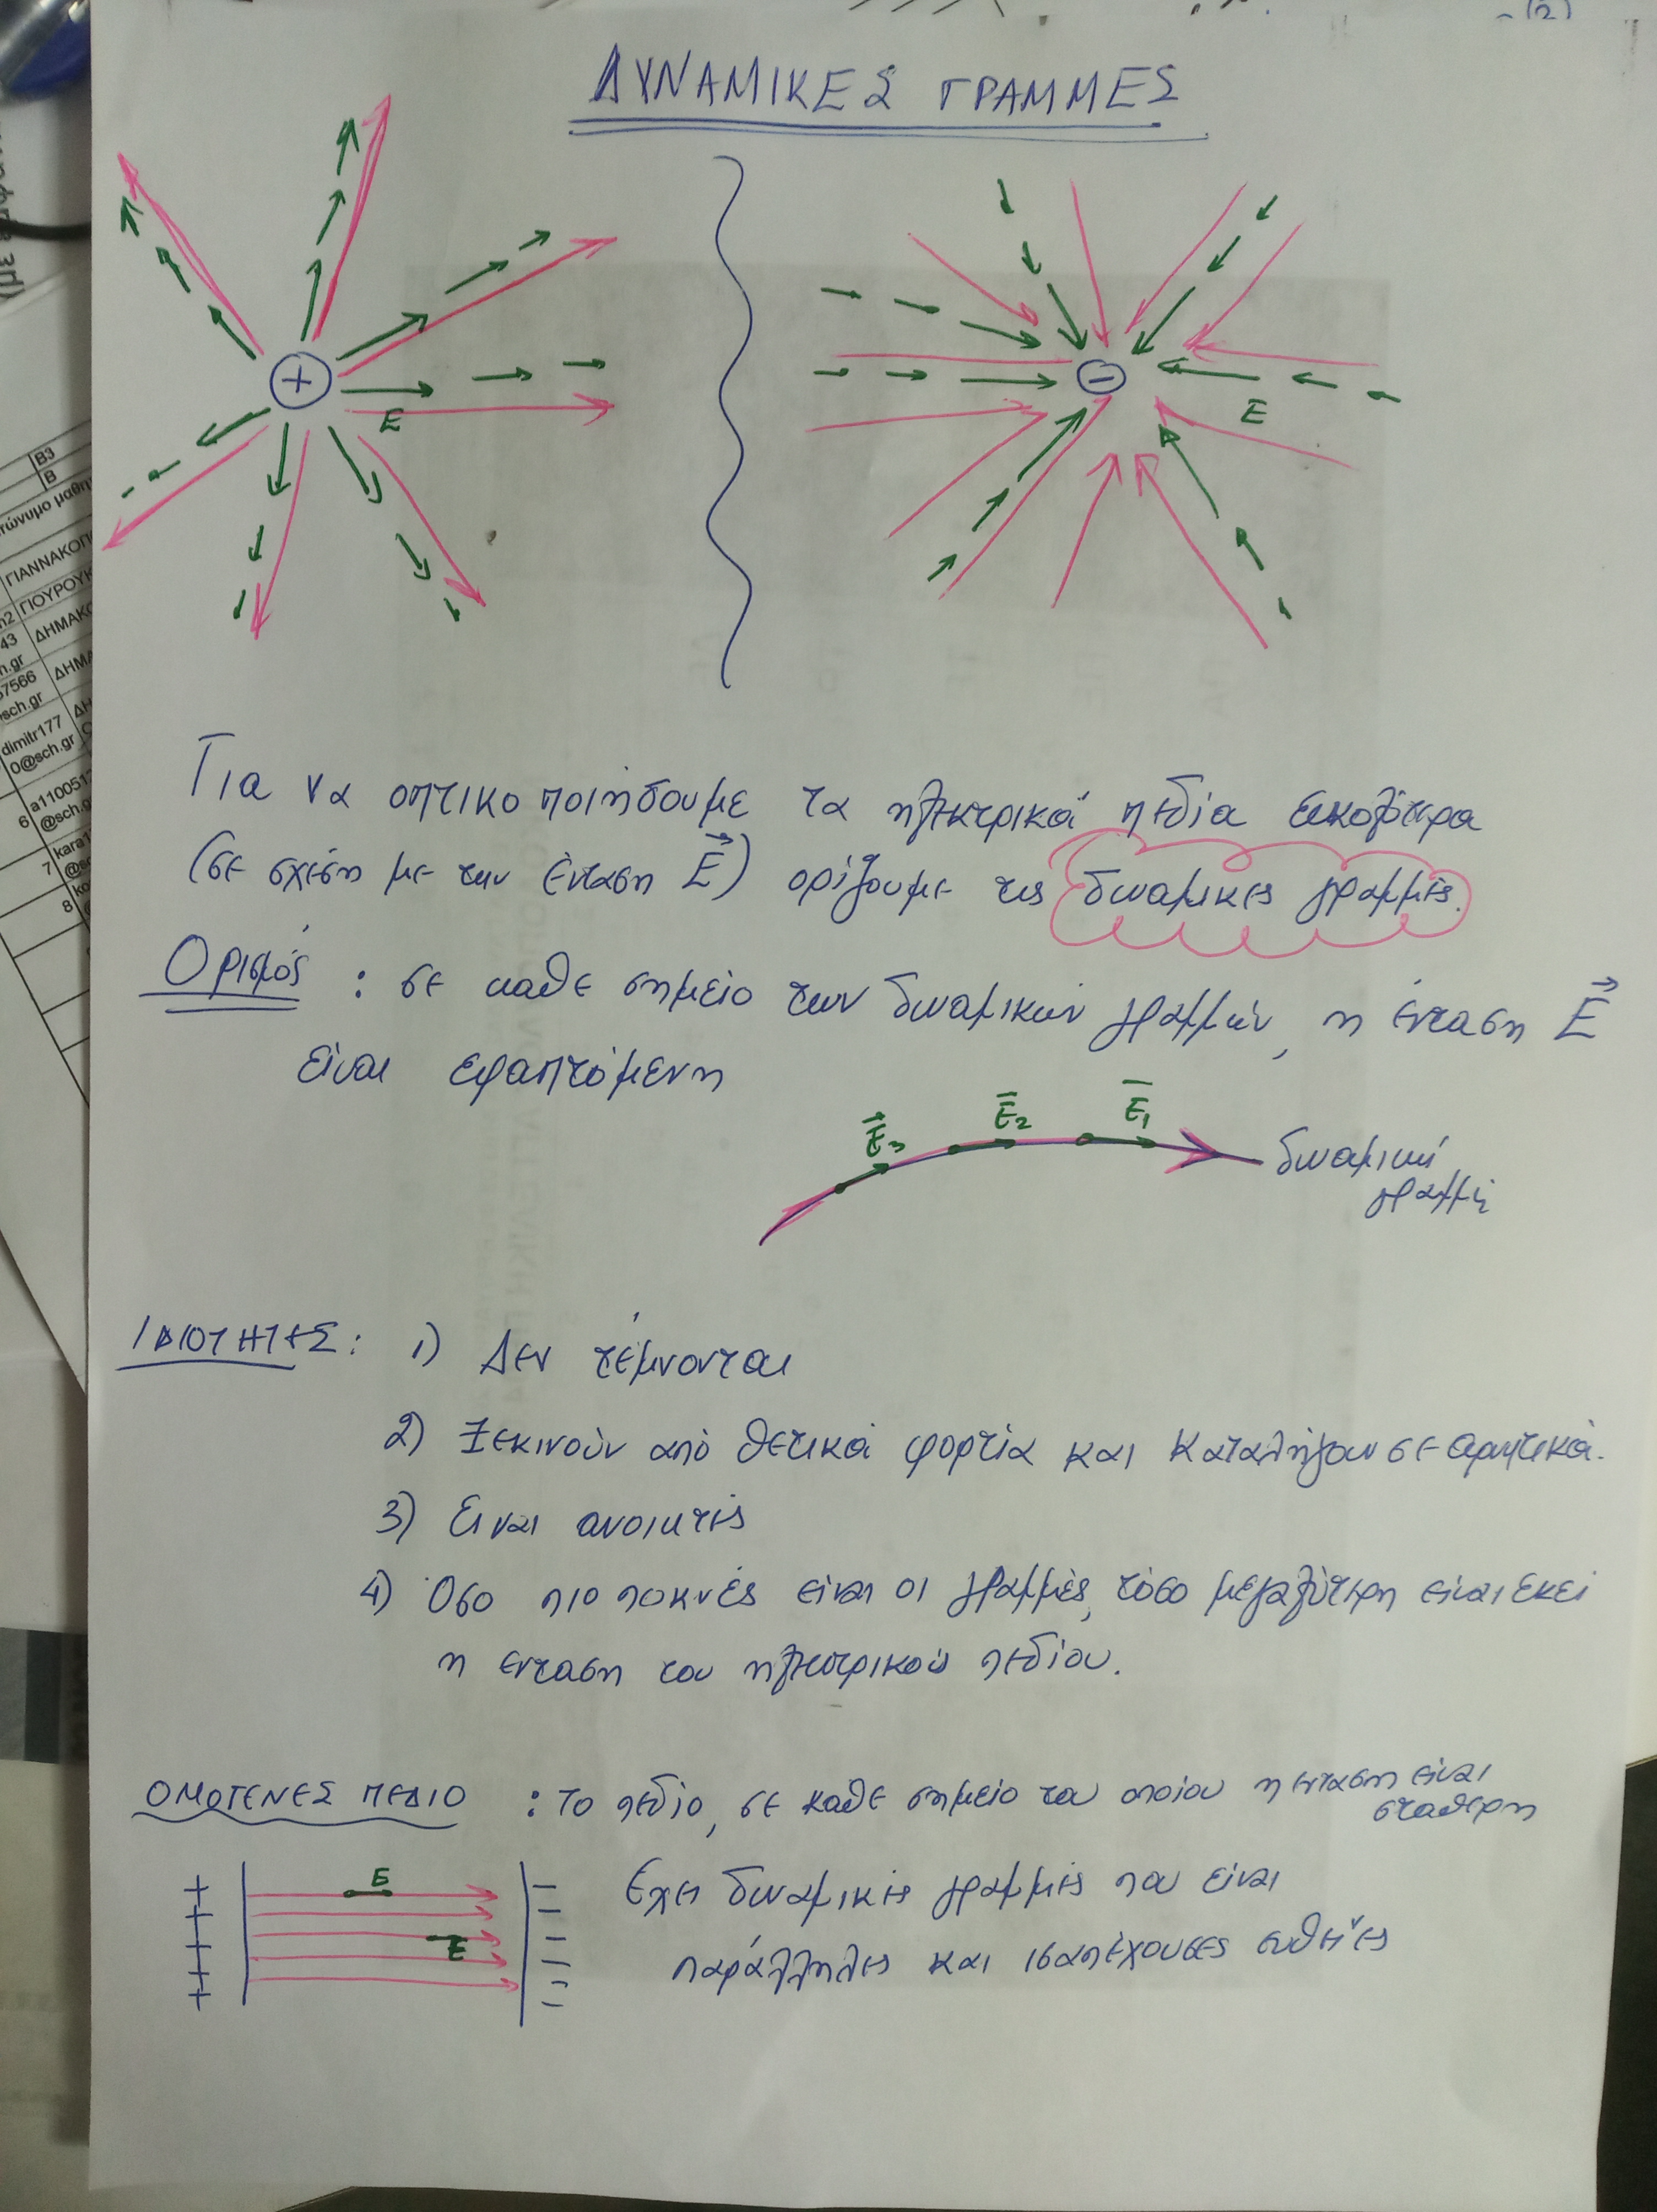 (2)
ΔΥΝΑΜΙΚΕΣ ΓΡΑΜΜΕΣ
+
E
-
E
Για να οπτικοποιήσουμε τα ηλεκτρικά πεδία ευκολότερα
(σε σχέση με την ένταση E) ορίζουμε τις δυναμικες γραμμές.
Ορισμός : σε καθε σημείο των δυναμικών γραμμών, η ένταση E
είναι εφαπτόμενη
E3 E2 E1
δυναμική
γραμμή
ΙΔΙΟΤΗΤΕΣ: 1) Δεν τέμνονται
2) Ξεκινούν από θετικά φορτία και καταλήγουν σε αρνητικά.
3) Ειναι ανοικτές
4) Όσο πιο πυκνές είναι οι γραμμές, τόσο μεγαλύτερη είναι εκεί
η ενταση του ηλεκτρικού πεδίου.
ΟΜΟΓΕΝΕΣ ΠΕΔΙΟ : το πεδίο, σε καθε σημείο του οποίου η ενταση είναι
σταθερη
Εχει δυναμικές γραμμές που είναι
παράλληλες και ισαπέχουσες ευθείες
+ E -
+ -
+ E -
+ -
+ -
B3
B
ΓΙΟΥΡΟΥΚ
43
ΔΗΜΑΚΟ
57566
sch.gr
ΔΗΜΑ
dimitr177
0@sch.gr
6 a110051
@sch.g
7 kara1
8 ko